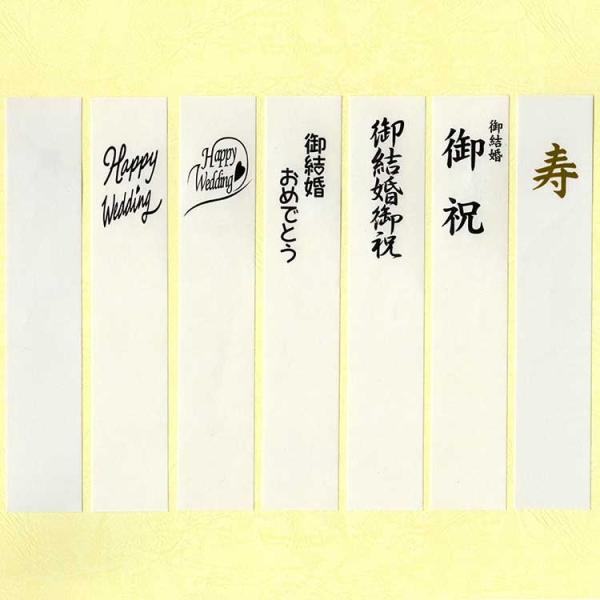 Happy
Wedding
Happy
Wedding
御結婚
おめでとう
御結婚御祝
御結婚
御祝
寿